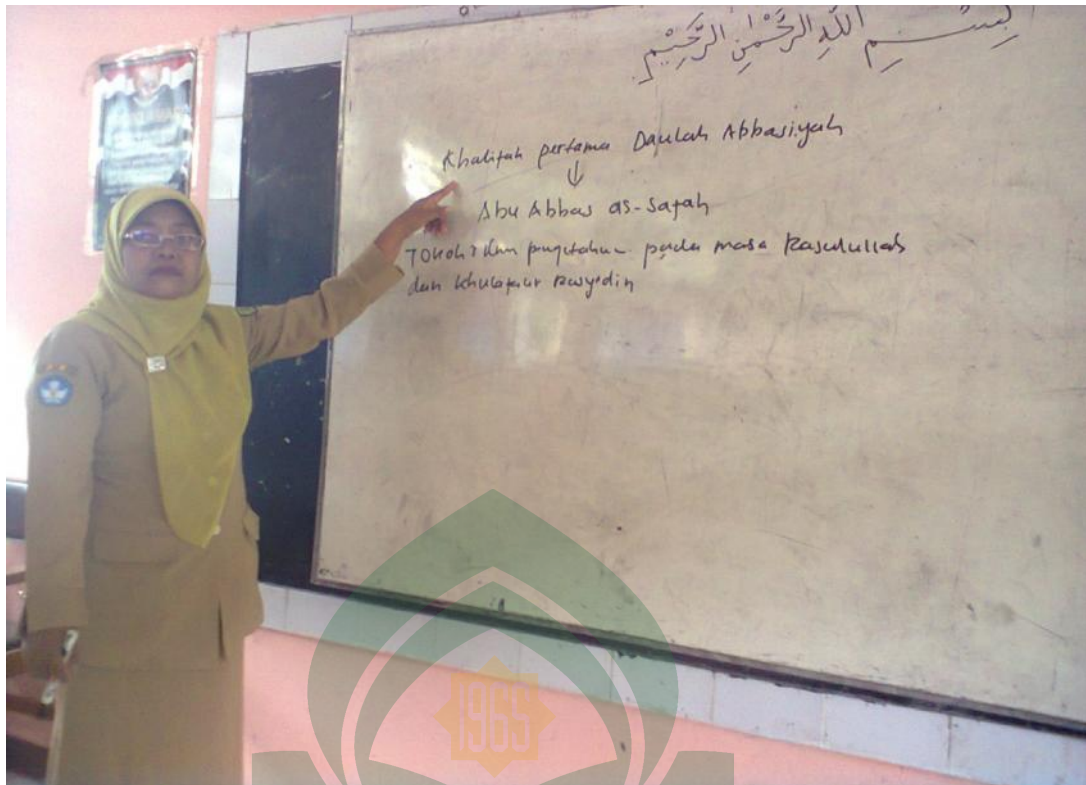 بِسْمِ اللَّهِ الرَّحْمٰنِ الرَّحِيْمِ
Khalifah pertama Daulah Abbasiyah
↓
Abu Abbas as-Safah
Tokoh² pada masa Rasulullah
dan Khulafaur Rasyidin
1965